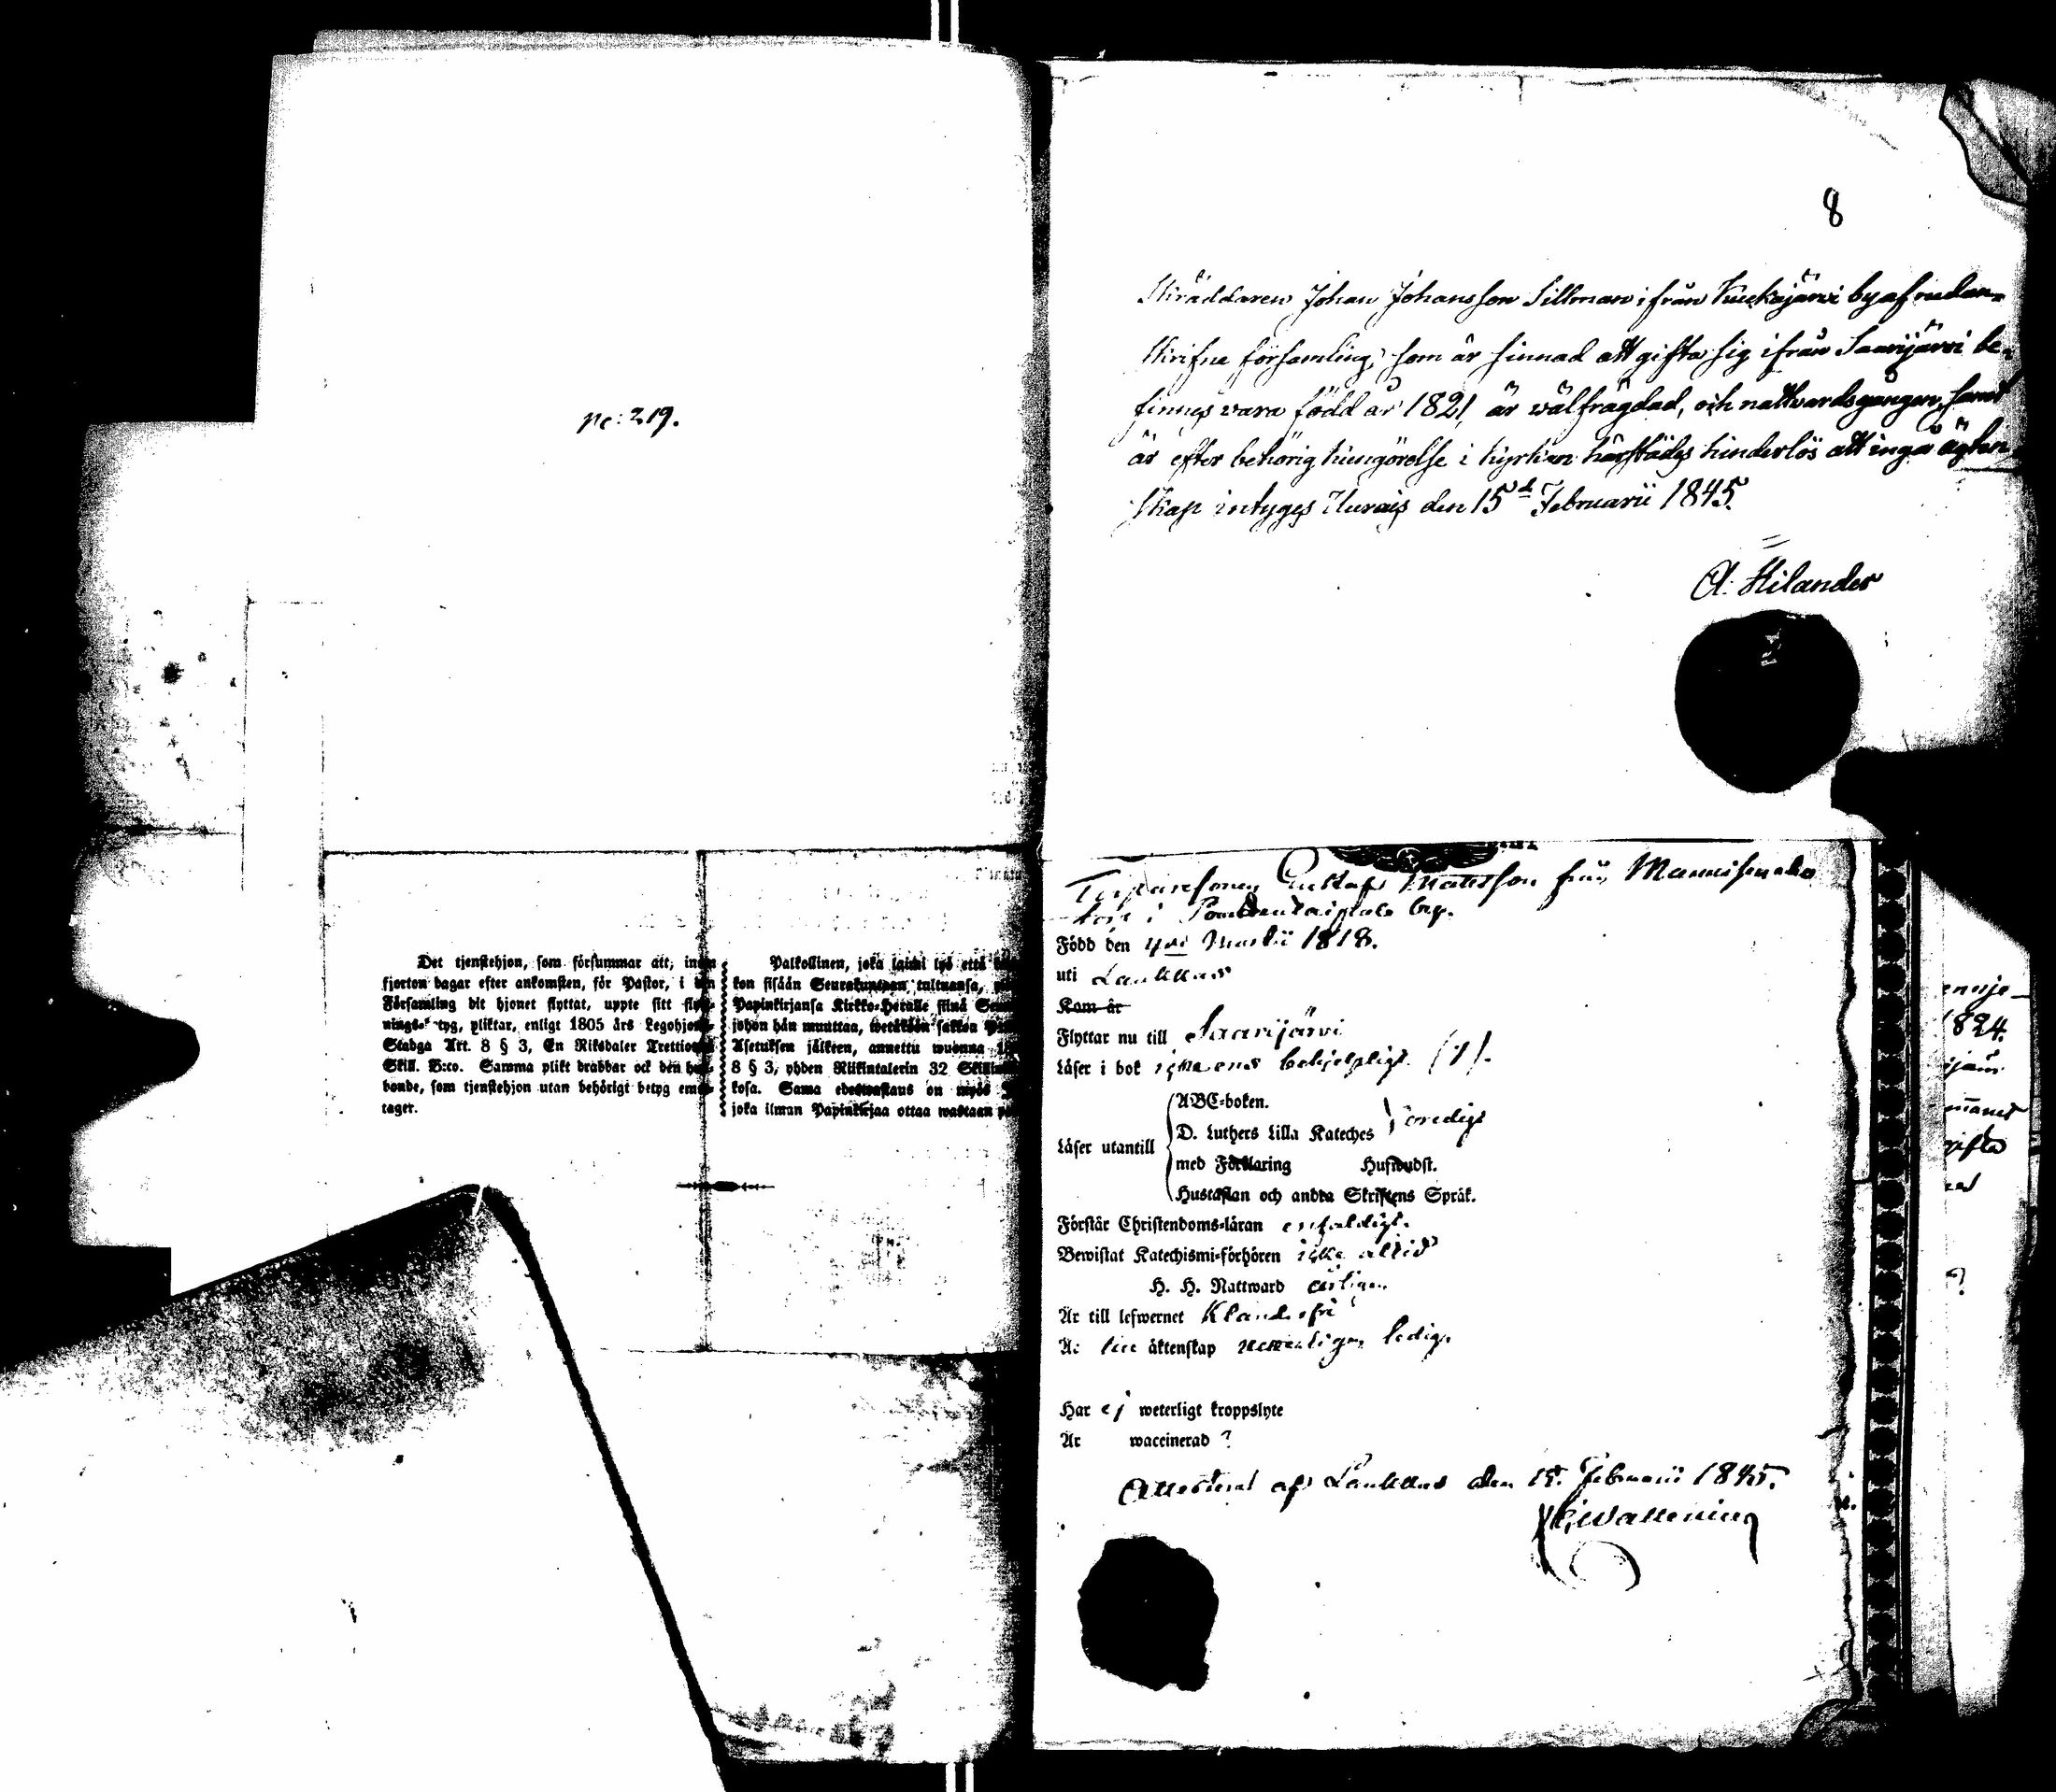 no: 219.
Det tjenstehjon, som försummar att, inom
fjorton dagar efter ankomsten, för Pastor, i den
Församling dit hjonet flyttat, uppte sitt flytt-
nings-betyg, pliktar, enligt 1805 års Legohjons-
Stadga Art. 8 § 3, En Riksdaler Trettiotvå
Skill. B:co. Samma plikt drabbar ock den hus-
bonde, som tjenstehjon utan behörigt betyg emot-
tager.
Palkollinen, joka laimi lyö että
kon sisään Seurakuntaan tultuansa,
Papinkirjansa Kirkko-Herralle siinä
johon hän muuttaa, wetäköön sakkoa
Asetuksen jälkeen, annettu wuonna
8 § 3, yhden Riikintalerin 32
kosa. Sama edeswastaus on myös
joka ilman Papinkirjaa ottaa wastaan
8
Skräddaren Johan Johansson Sillman ifrån Kuckajärvi by af nedan-
skrifne församling, som är sinnad att gifta sig ifrån Saarijärvi be-
finnes vara född år 1821, är wälfrägdad, och nattvardsgången, samt
är efter behörig kungörelse i kyrkan härstädes hinderlös att ingå ägten-
skap intyges den 15d Februarii 1845.
A. Kilander
Gustaf Matsson från
i by.
Född den 4de Martii 1818.
uti Laukkas
Kom år
Flyttar nu till Saarijärvi
Läser i bok icke ens behjelpligt. (1).
Läser utantill
ABC-boken.
D. Luthers Lilla Kateches oredigt
med Förklaring Hufwudst.
Hustaflan och andra Skriftens Språk.
Förstår Christendoms-läran enfaldigt.
Bewistat Katechismi-förhören icke alltid
H. H. Nattward årligen
Är till lefwernet Klanderfri
Är till äktenskap ledig.
Har ej weterligt kroppslyte
Är waccinerad ?
Attesteras af Laukkas den 15. Februarii 1845.
Wallenius
1824.
gifta
?